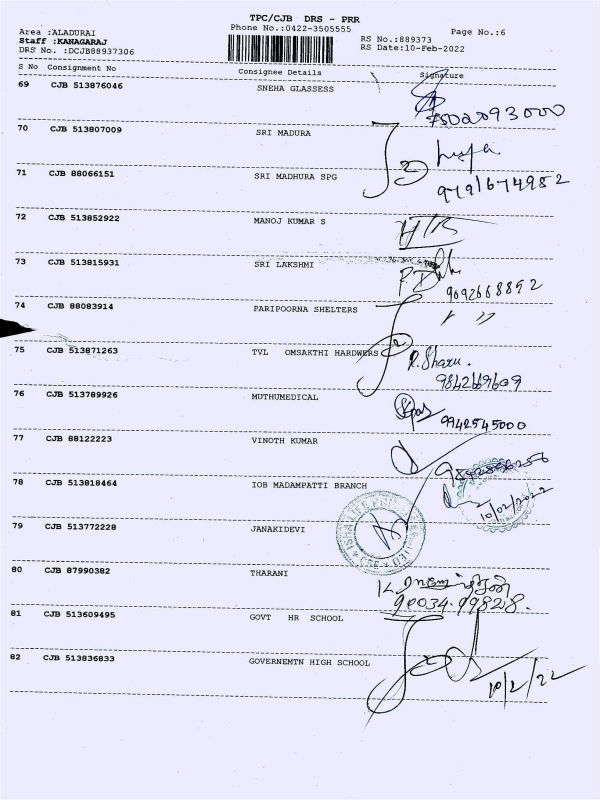 TPC/CJB DRS - PRR
Phone No.:0422-3505555
Page No.:6
Area :ALADURAI
Staff :KANAGARAJ
DRS No. :DCJB88937306
RS No.:889373
RS Date:10-Feb-2022
S No Consignment No Consignee Details Signature
69 CJB 513876046 SNEHA GLASSESS
70 CJB 513807009 SRI MADURA
71 CJB 88066151 SRI MADHURA SPG
72 CJB 513852922 MANOJ KUMAR S
73 CJB 513815931 SRI LAKSHMI
9092668892
74 CJB 88083914 PARIPOORNA SHELTERS
75 CJB 513871263 TVL OMSAKTHI HARDWERS
9842669609
76 CJB 513789926 MUTHUMEDICAL
9942545000
77 CJB 88122223 VINOTH KUMAR
78 CJB 513818464 IOB MADAMPATTI BRANCH
10/02/2022
79 CJB 513772228 JANAKIDEVI
80 CJB 87990382 THARANI
90034.99828.
81 CJB 513609495 GOVT HR SCHOOL
82 CJB 513836833 GOVERNEMTN HIGH SCHOOL
10/2/22